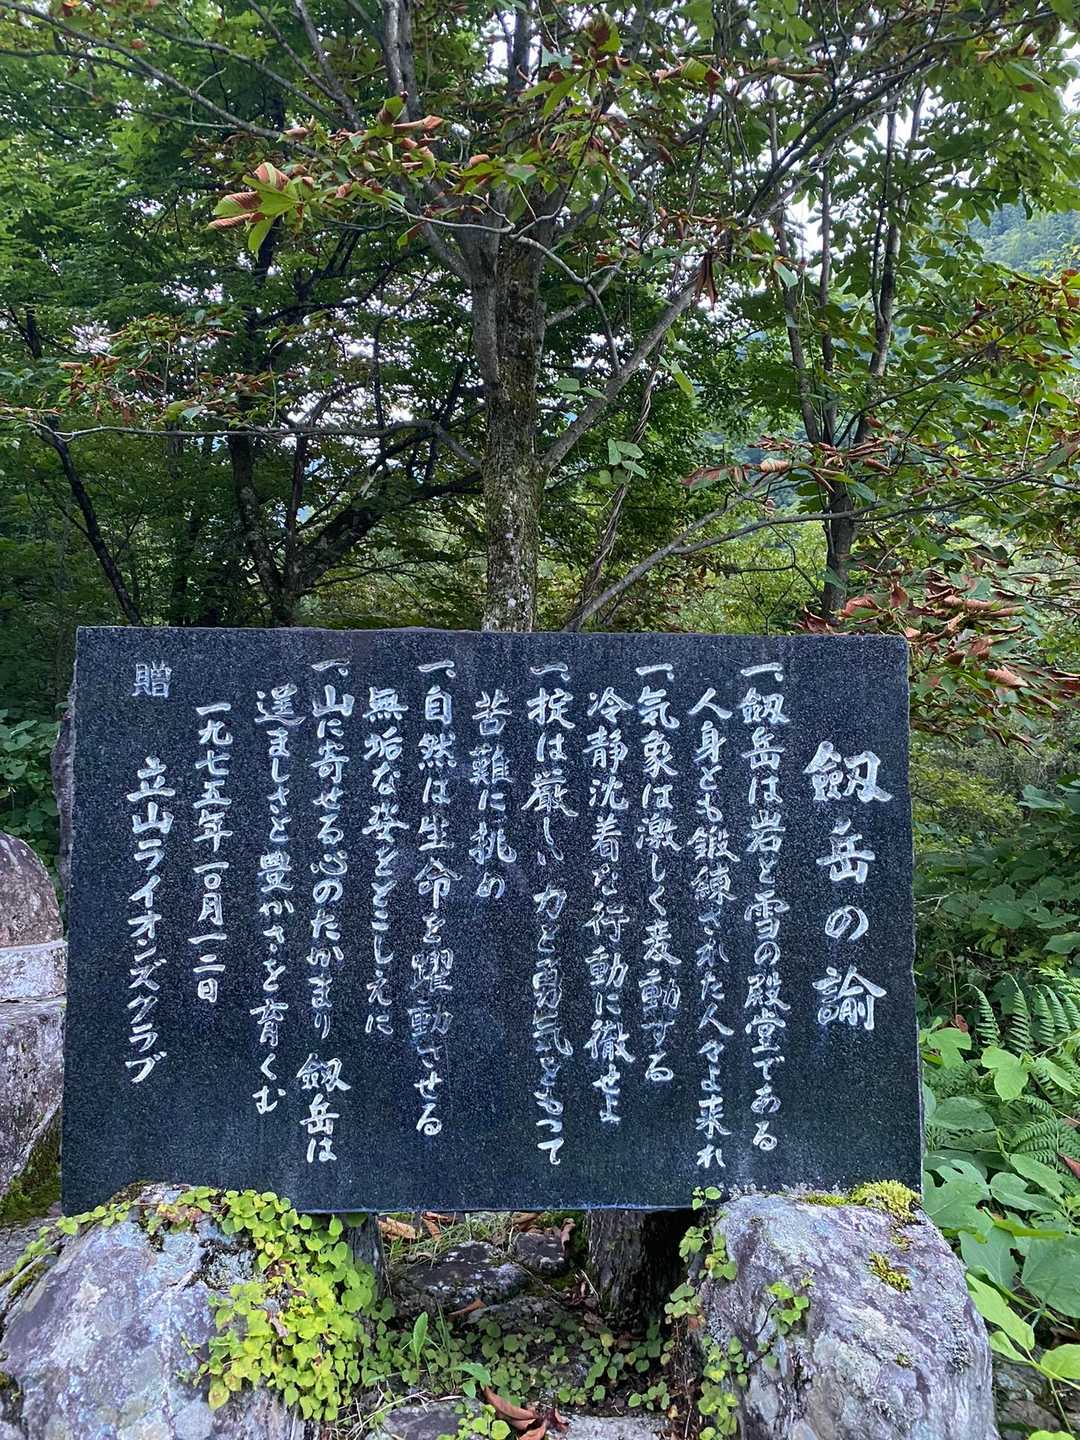 劔岳の諭
一、劔岳は岩と雪の殿堂である
人身とも鍛錬された人々よ来れ
一、気象は激しく変動する
冷静沈着な行動に徹せよ
一、掟は厳しい 力と勇気をもって
苦難に挑め
一、自然は生命を躍動させる
無垢な姿をとこしえに
一、山に寄せる心のたかまり 劔岳は
逞ましさと豊かさを育くむ
一九七五年一〇月一二日
贈 立山ライオンズクラブ